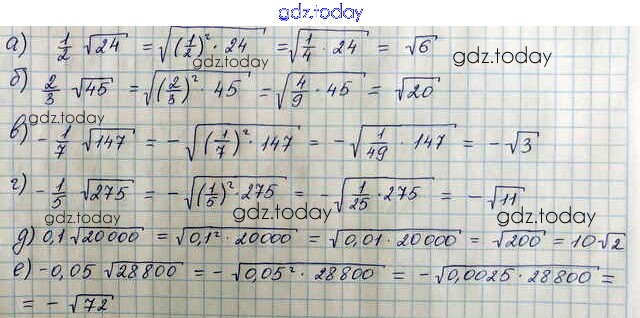 gdz.today
а) 1/2 √24 = √((1/2)² · 24) = √(1/4 · 24) = √6
gdz.today
gdz.today
б) 2/3 √45 = √((2/3)² · 45) = √(4/9 · 45) = √20
gdz.today
в) -1/7 √147 = -√((1/7)² · 147) = -√(1/49 · 147) = -√3
gdz.today
г) -1/5 √275 = -√((1/5)² · 275) = -√(1/25 · 275) = -√11
gdz.today
gdz.today
gdz.today
д) 0,1 √20000 = √(0,1² · 20000) = √(0,01 · 20000) = √200 = 10√2
е) -0,05 √28800 = -√(0,05² · 28800) = -√(0,0025 · 28800) =
= -√72
gdz.today
gdz.today